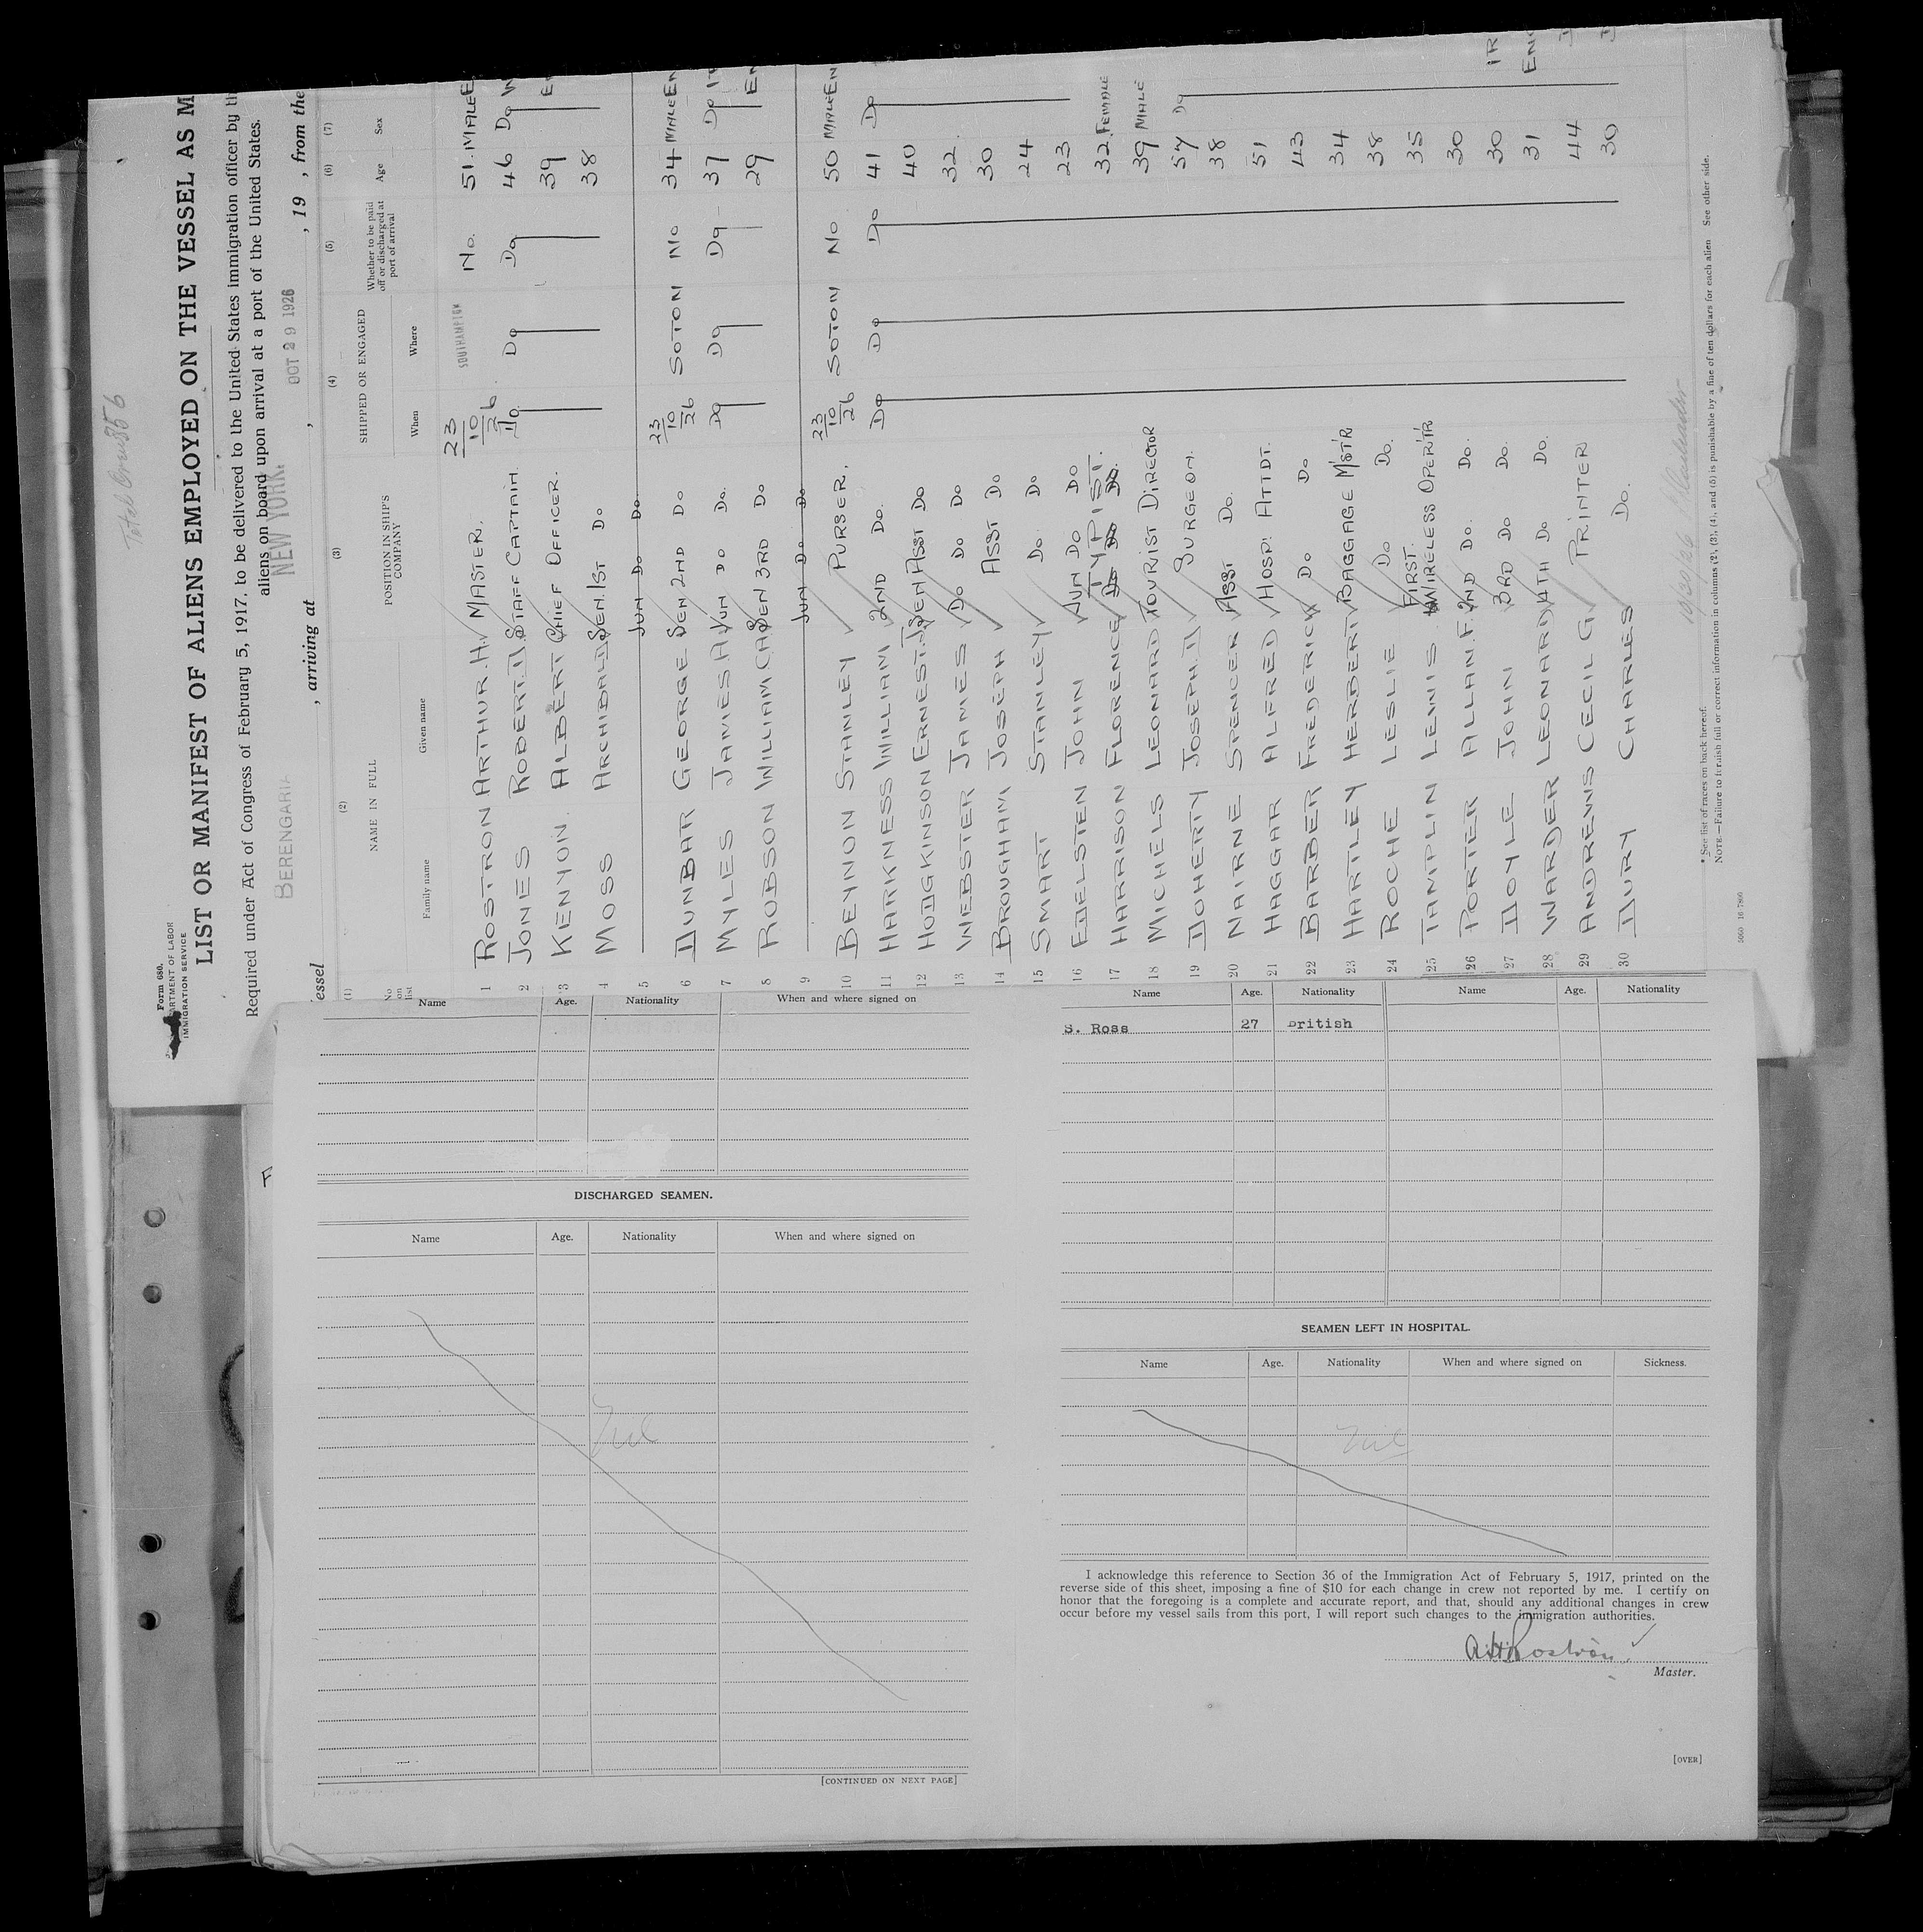 Total Crew 856
Form 680.
DEPARTMENT OF LABOR
IMMIGRATION SERVICE
LIST OR MANIFEST OF ALIENS EMPLOYED ON THE VESSEL AS M
Required under Act of Congress of February 5, 1917, to be delivered to the United States immigration officer by th
aliens on board upon arrival at a port of the United States.
essel BERENGARIA , arriving at NEW YORK. , OCT 29 1926 , 19 , from the
(1) (2) (3) (4) (5) (6) (7)
No. on list NAME IN FULL POSITION IN SHIP'S COMPANY SHIPPED OR ENGAGED Whether to be paid off or discharged at port of arrival Age Sex
Family name Given name When Where
1 ROSTRON ARTHUR. H. MASTER. 23/10/26 SOUTHAMPTON No. 51. MALE E
2 JONES ROBERT. D. STAFF CAPTAIN. Do. Do Do 46 Do W
3 KENYON. ALBERT CHIEF OFFICER. 39 E
4 MOSS ARCHIBALD SEN. 1ST Do 38
5 JUN Do Do
6 DUNBAR GEORGE SEN 2ND Do 23/10/26 SOTON No 34 MALE EN
7 MYLES JAMES. A. JUN Do Do. Do Do Do 37 Do
8 ROBSON WILLIAM SEN 3RD Do 29 EN
9 JUN Do Do
10 BEYNON STANLEY PURSER. 23/10/26 SOTON No 50 MALE EN
11 HARKNESS WILLIAM 2ND Do. Do Do Do 41 Do
12 HODGKINSON ERNEST. J. SEN ASST Do 40
13 WEBSTER JAMES Do Do Do 32.
14 BROUGHAM JOSEPH ASST Do 30
15 SMART STANLEY Do Do 24
16 EDELSTEN JOHN JUN Do Do 23
17 HARRISON FLORENCE TYPIST. 32. FEMALE
18 MICHELS LEONARD TOURIST DIRECTOR 39 MALE
19 DOHERTY JOSEPH. D SURGEON. 57 Do
20 NAIRNE SPENCER ASST Do. 38
21 HAGGAR ALFRED HOSP. ATTDT. 51
22 BARBER FREDERICK Do Do 43
23 HARTLEY HERBERT BAGGAGE M'ST'R 34
24 ROCHE LESLIE Do Do. 38
25 TAMPLIN LENNIS FIRST. WIRELESS OPER'T'R 35
26 PORTER ALLAN. F. 2ND Do. Do. 30
27 DOYLE JOHN 3RD Do Do. 30 IR
28 WARDER LEONARD 4TH Do Do. 31 ENG
29 ANDREWS CECIL G PRINTER 44
30 DURY CHARLES Do. 30
* See list of races on back hereof.
NOTE.—Failure to furnish full or correct information in columns (2), (3), (4), and (5) is punishable by a fine of ten dollars for each alien See other side.
10/30/26
Name Age. Nationality When and where signed on
DISCHARGED SEAMEN.
Name Age. Nationality When and where signed on
Nil
[CONTINUED ON NEXT PAGE]
Name Age. Nationality Name Age. Nationality
S. Ross 27 British
SEAMEN LEFT IN HOSPITAL.
Name Age. Nationality When and where signed on Sickness.
Nil
I acknowledge this reference to Section 36 of the Immigration Act of February 5, 1917, printed on the
reverse side of this sheet, imposing a fine of $10 for each change in crew not reported by me. I certify on
honor that the foregoing is a complete and accurate report, and that, should any additional changes in crew
occur before my vessel sails from this port, I will report such changes to the immigration authorities.
A.H. Rostron
Master.
[OVER]